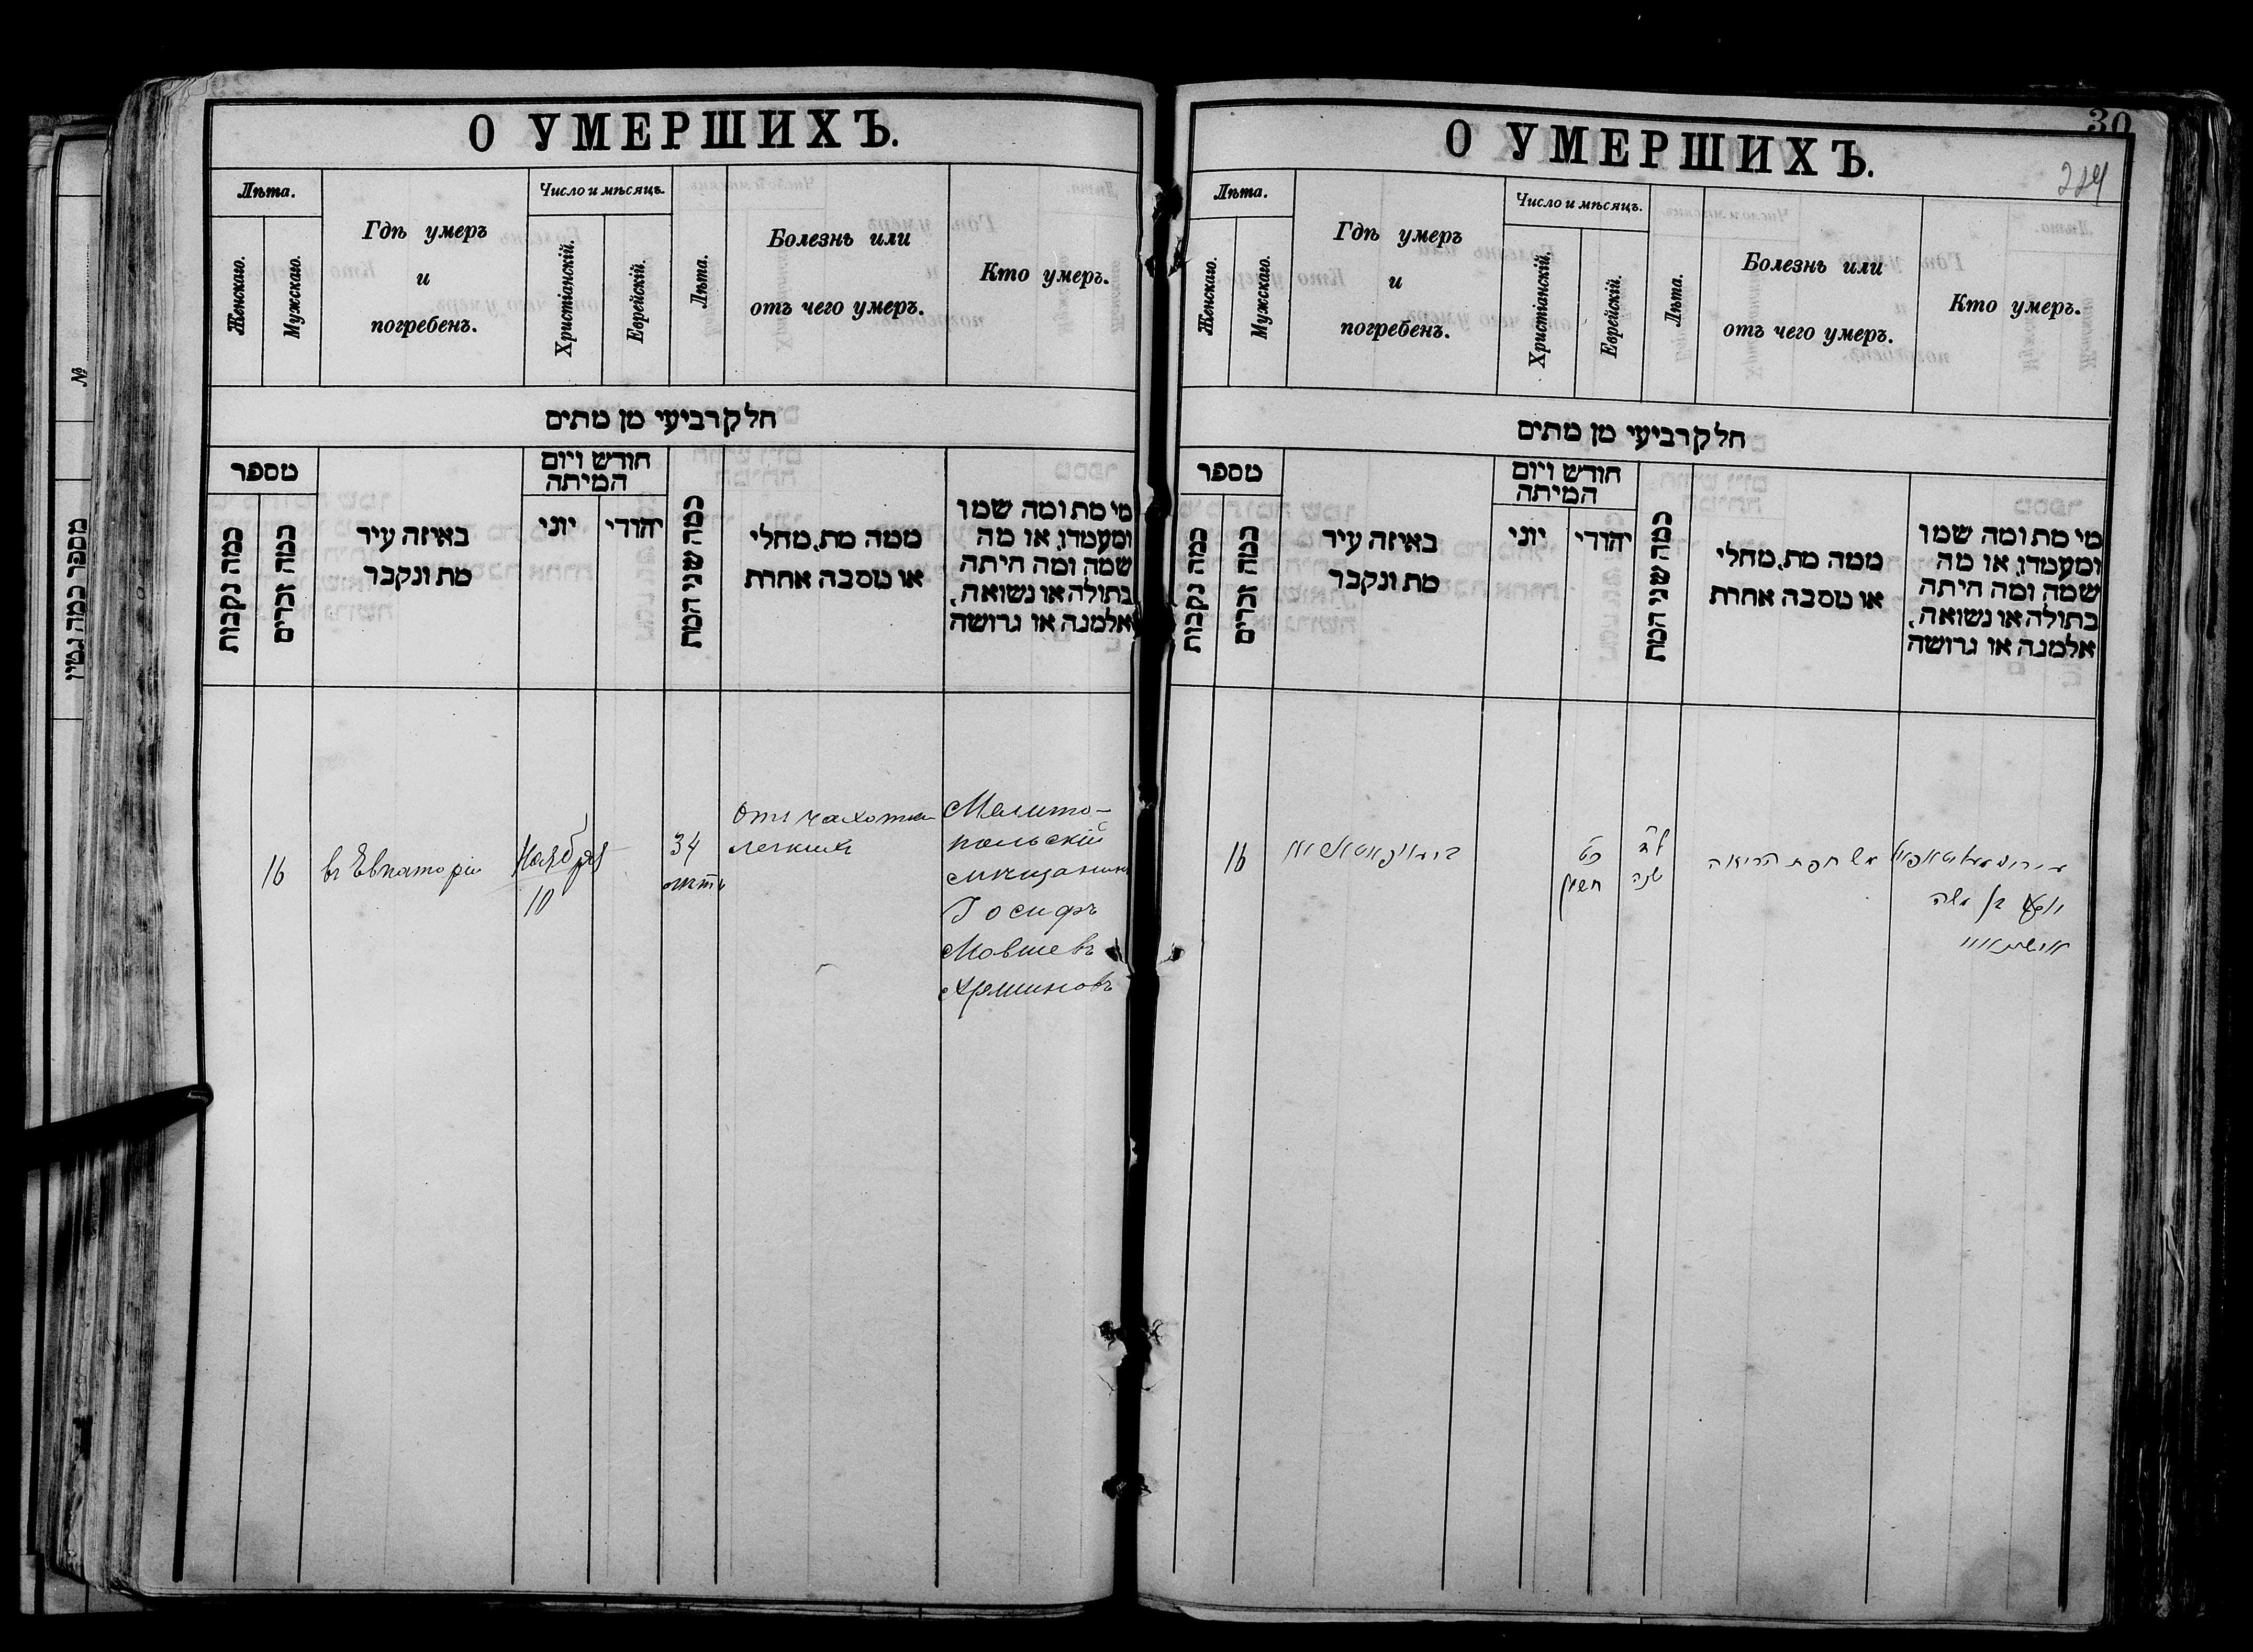 О УМЕРШИХЪ.
Лѣта.
Женскаго.
Мужскаго.
Гдѣ умеръ
и
погребенъ.
Число и мѣсяцъ.
Христіанскій.
Еврейскій.
Лѣта.
Болезнь или
отъ чего умеръ.
Кто умеръ.
חלק רביעי מן מתים
מספר
כמה נקבות
כמה זכרים
באיזה עיר
מת ונקבר
חודש ויום
המיתה
יוני
יהודי
כמה שני המת
ממה מת, מחלי
או מסבה אחרת
מי מת ומה שמו
ומעמדו, או מה
שמה ומה היתה
בתולה או נשואה,
אלמנה או גרושה
16
въ Евпаторіи
Ноября
10
34
лѣтъ
Отъ чахотки
легкихъ
Мелито-
польскій
мѣщанинъ
Іосифъ
Мовшевъ
№
מספר כמה גטין
О УМЕРШИХЪ.
30
224
Лѣта.
Женскаго.
Мужскаго.
Гдѣ умеръ
и
погребенъ.
Число и мѣсяцъ.
Христіанскій.
Еврейскій.
Лѣта.
Болезнь или
отъ чего умеръ.
Кто умеръ.
חלק רביעי מן מתים
מספר
כמה נקבות
כמה זכרים
באיזה עיר
מת ונקבר
חודש ויום
המיתה
יוני
יהודי
כמה שני המת
ממה מת, מחלי
או מסבה אחרת
מי מת ומה שמו
ומעמדו, או מה
שמה ומה היתה
בתולה או נשואה,
אלמנה או גרושה
16
חשון
שנה
שחפת הריאה
בן משה